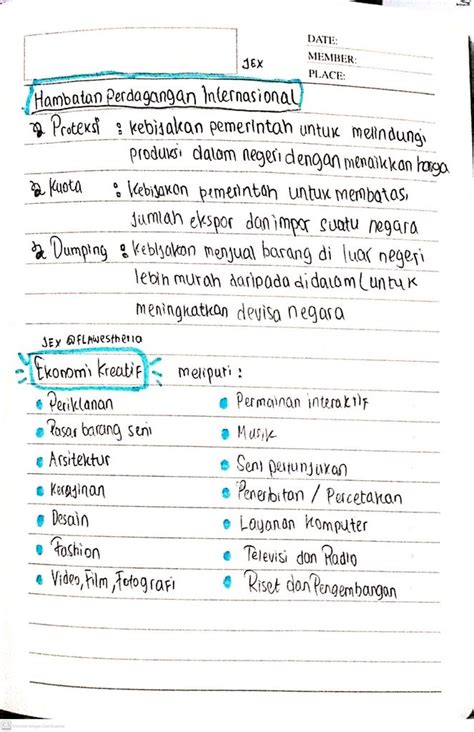 DATE:
JEX
MEMBER:
PLACE:
Hambatan Perdagangan Internasional
Proteksi : kebijakan pemerintah untuk melindungi
produksi dalam negeri dengan menaikkan harga
Kuota : kebijakan pemerintah untuk membatasi
jumlah ekspor dan impor suatu negara
Dumping : kebijakan menjual barang di luar negeri
lebih murah daripada di dalam (untuk
meningkatkan devisa negara
JEX
Ekonomi Kreatif meliputi :
• Periklanan
• Pasar barang seni
• Arsitektur
• Kerajinan
• Desain
• Fashion
• Video, Film, Fotografi
• Permainan interaktif
• Musik
• Seni pertunjukan
• Penerbitan / Percetakan
• Layanan Komputer
• Televisi dan Radio
• Riset dan Pengembangan